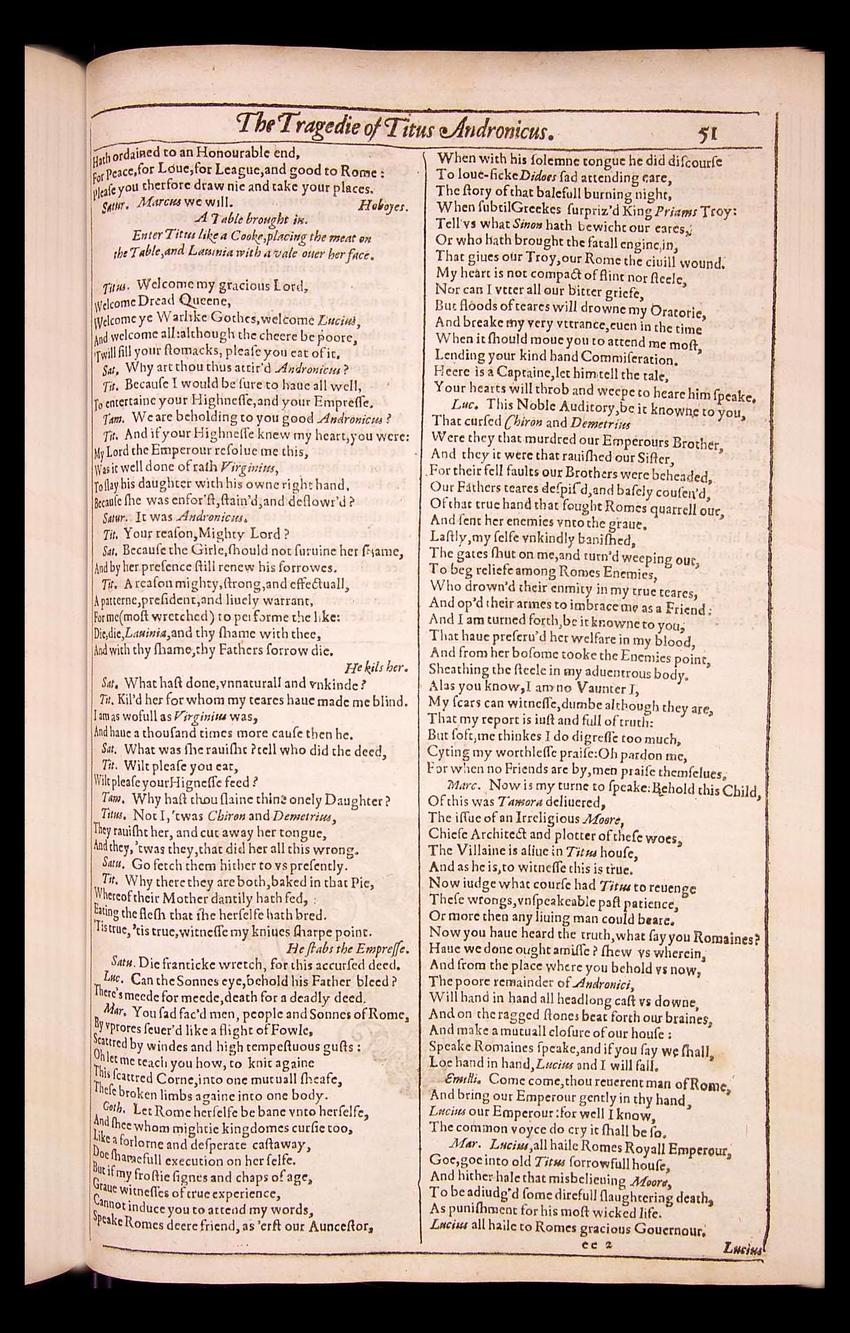 The Tragedie of Titus Andronicus. 51
Hath ordained to an Honourable end,
For Peace,for Loue,for League,and good to Rome :
Pleaſe you therfore draw nie and take your places.
Satur. Marcus we will. Hoboyes.
A Table brought in.
Enter Titus like a Cooke,placing the meat on
the Table,and Lauinia with a vale ouer her face.
Titus. Welcome my gracious Lord,
Welcome Dread Queene,
Welcome ye Warlike Gothes,welcome Lucius,
And welcome all:although the cheere be poore,
'Twill fill your ſtomacks, pleaſe you eat of it.
Sat. Why art thou thus attir'd Andronicus ?
Tit. Becauſe I would be ſure to haue all well,
To entertaine your Highneſſe,and your Empreſſe.
Tam. We are beholding to you good Andronicus ?
Tit. And if your Highneſſe knew my heart,you were:
My Lord the Emperour reſolue me this,
Was it well done of raſh Virginius,
To ſlay his daughter with his owne right hand,
Becauſe ſhe was enfor'ſt,ſtain'd,and deflowr'd ?
Satur. It was Andronicus.
Tit. Your reaſon,Mighty Lord ?
Sat. Becauſe the Girle,ſhould not ſuruine her ſhame,
And by her preſence ſtill renew his ſorrowes.
Tit. A reaſon mighty,ſtrong,and effectuall,
A patterne,preſident,and liuely warrant,
For me(moſt wretched) to performe the like:
Die,die,Lauinia,and thy ſhame with thee,
And with thy ſhame,thy Fathers ſorrow die.
He kils her.
Sat. What haſt done,vnnaturall and vnkinde ?
Tit. Kil'd her for whom my teares haue made me blind.
I am as wofull as Virginius was,
And haue a thouſand times more cauſe then he.
Sat. What was ſhe rauiſht ? tell who did the deed,
Tit. Wilt pleaſe you eat,
Wilt pleaſe yourHigneſſe feed ?
Tam. Why haſt thou ſlaine thine onely Daughter ?
Titus. Not I,'twas Chiron and Demetrius,
They rauiſht her, and cut away her tongue,
And they,'twas they,that did her all this wrong.
Satu. Go fetch them hither to vs preſently.
Tit. Why there they are both,baked in that Pie,
Whereof their Mother dantily hath fed,
Eating the fleſh that ſhe herſelfe hath bred.
'Tis true,'tis true,witneſſe my kniues ſharpe point.
He ſtabs the Empreſſe.
Satu. Die franticke wretch, for this accurſed deed.
Luc. Can the Sonnes eye,behold his Father bleed ?
There's meede for meede,death for a deadly deed.
Mar. You ſad fac'd men, people and Sonnes of Rome,
By vprores ſeuer'd like a flight of Fowle,
Scattred by windes and high tempeſtuous guſts :
Oh let me teach you how, to knit againe
This ſcattred Corne,into one mutuall ſheafe,
Theſe broken limbs againe into one body.
Goth. Let Rome herſelfe be bane vnto herſelfe,
And ſhee whom mightie kingdomes curſie too,
Like a forlorne and deſperate caſtaway,
Doe ſhamefull execution on her ſelfe.
But if my froſtie ſignes and chaps of age,
Graue witneſſes of true experience,
Cannot induce you to attend my words,
Speake Romes deere friend, as 'erſt our Aunceſtor,
When with his ſolemne tongue he did diſcourſe
To loue-ſicke Didoes ſad attending eare,
The ſtory of that balefull burning night,
When ſubtilGreekes ſurpriz'd King Priams Troy:
Tell vs what Sinon hath bewicht our eares,
Or who hath brought the fatall engine,in,
That giues our Troy,our Rome the ciuill wound.
My heart is not compact of flint nor ſteele,
Nor can I vtter all our bitter griefe,
But floods of teares will drowne my Oratorie,
And breake my very vttrance,euen in the time
When it ſhould moue you to attend me moſt,
Lending your kind hand Commiſeration.
Heere is a Captaine,let him tell the tale,
Your hearts will throb and weepe to heare him ſpeake.
Luc. This Noble Auditory,be it knowne to you,
That curſed Chiron and Demetrius
Were they that murdred our Emperours Brother,
And they it were that rauiſhed our Siſter,
For their fell faults our Brothers were beheaded,
Our Fathers teares deſpiſ'd,and baſely couſen'd,
Of that true hand that fought Romes quarrell out,
And ſent her enemies vnto the graue.
Laſtly,my ſelfe vnkindly baniſhed,
The gates ſhut on me,and turn'd weeping out,
To beg reliefe among Romes Enemies,
Who drown'd their enmity in my true teares,
And op'd their armes to imbrace me as a Friend :
And I am turned forth,be it knowne to you,
That haue preſeru'd her welfare in my blood,
And from her boſome tooke the Enemies point,
Sheathing the ſteele in my aduentrous body.
Alas you know,I am no Vaunter I,
My ſcars can witneſſe,dumbe although they are,
That my report is iuſt and full of truth:
But ſoft,me thinkes I do digreſſe too much,
Cyting my worthleſſe praiſe:Oh pardon me,
For when no Friends are by,men praiſe themſelues.
Marc. Now is my turne to ſpeake:Behold this Child,
Of this was Tamora deliuered,
The iſſue of an Irreligious Moore,
Chiefe Architect and plotter of theſe woes,
The Villaine is aliue in Titus houſe,
And as he is,to witneſſe this is true.
Now iudge what courſe had Titus to reuenge
Theſe wrongs,vnſpeakeable paſt patience,
Or more then any liuing man could beare.
Now you haue heard the truth,what ſay you Romaines?
Haue we done ought amiſſe ? ſhew vs wherein,
And from the place where you behold vs now,
The poore remainder of Andronici,
Will hand in hand all headlong caſt vs downe,
And on the ragged ſtones beat forth our braines,
And make a mutuall cloſure of our houſe :
Speake Romaines ſpeake,and if you ſay we ſhall,
Loe hand in hand,Lucius and I will fall.
Emilli. Come come,thou reuerent man of Rome,
And bring our Emperour gently in thy hand,
Lucius our Emperour:for well I know,
The common voyce do cry it ſhall be ſo.
Mar. Lucius,all haile Romes Royall Emperour,
Goe,goe into old Titus ſorrowfull houſe,
And hither hale that misbelieuing Moore,
To be adiudg'd ſome direfull ſlaughtering death,
As puniſhment for his moſt wicked life.
Lucius all haile to Romes gracious Gouernour.
ee 2 Lucius